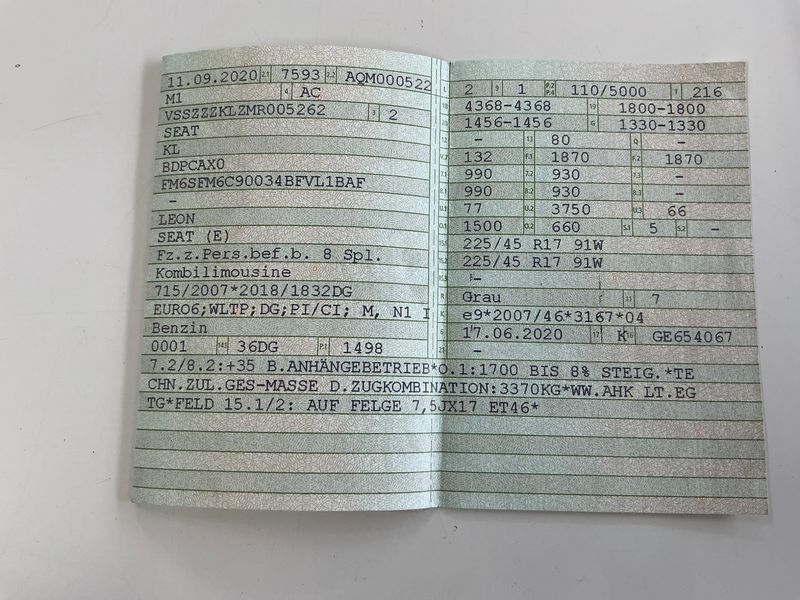 11.09.2020 2.1 7593 2.2 AQM000522
M1 4 AC
VSSZZZKLZMR005262 3 2
SEAT
KL
BDPCAX0
FM6SFM6C90034BFVL1BAF
-
LEON
SEAT (E)
Fz.z.Pers.bef.b. 8 Spl.
Kombilimousine
715/2007*2018/1832DG
EURO6;WLTP;DG;PI/CI; M, N1 I
Benzin
0001 14.1 36DG P.1 1498
L 2 9 1 P.2 P.4 110/5000 T 216
18 4368-4368 19 1800-1800
20 1456-1456 G 1330-1330
12 - 13 80 Q -
V.7 132 F.1 1870 F.2 1870
7.1 990 7.2 930 7.3 -
8.1 990 8.2 930 8.3 -
U.1 77 U.2 3750 U.3 66
O.1 1500 O.2 660 S.1 5 S.2 -
15.1 225/45 R17 91W
15.2 225/45 R17 91W
15.3 -
R Grau 11 7
K e9*2007/46*3167*04
6 17.06.2020 17 K 16 GE654067
21 -
7.2/8.2:+35 B.ANHÄNGEBETRIEB*O.1:1700 BIS 8% STEIG.*TE
CHN.ZUL.GES-MASSE D.ZUGKOMBINATION:3370KG*WW.AHK LT.EG
TG*FELD 15.1/2: AUF FELGE 7,5JX17 ET46*